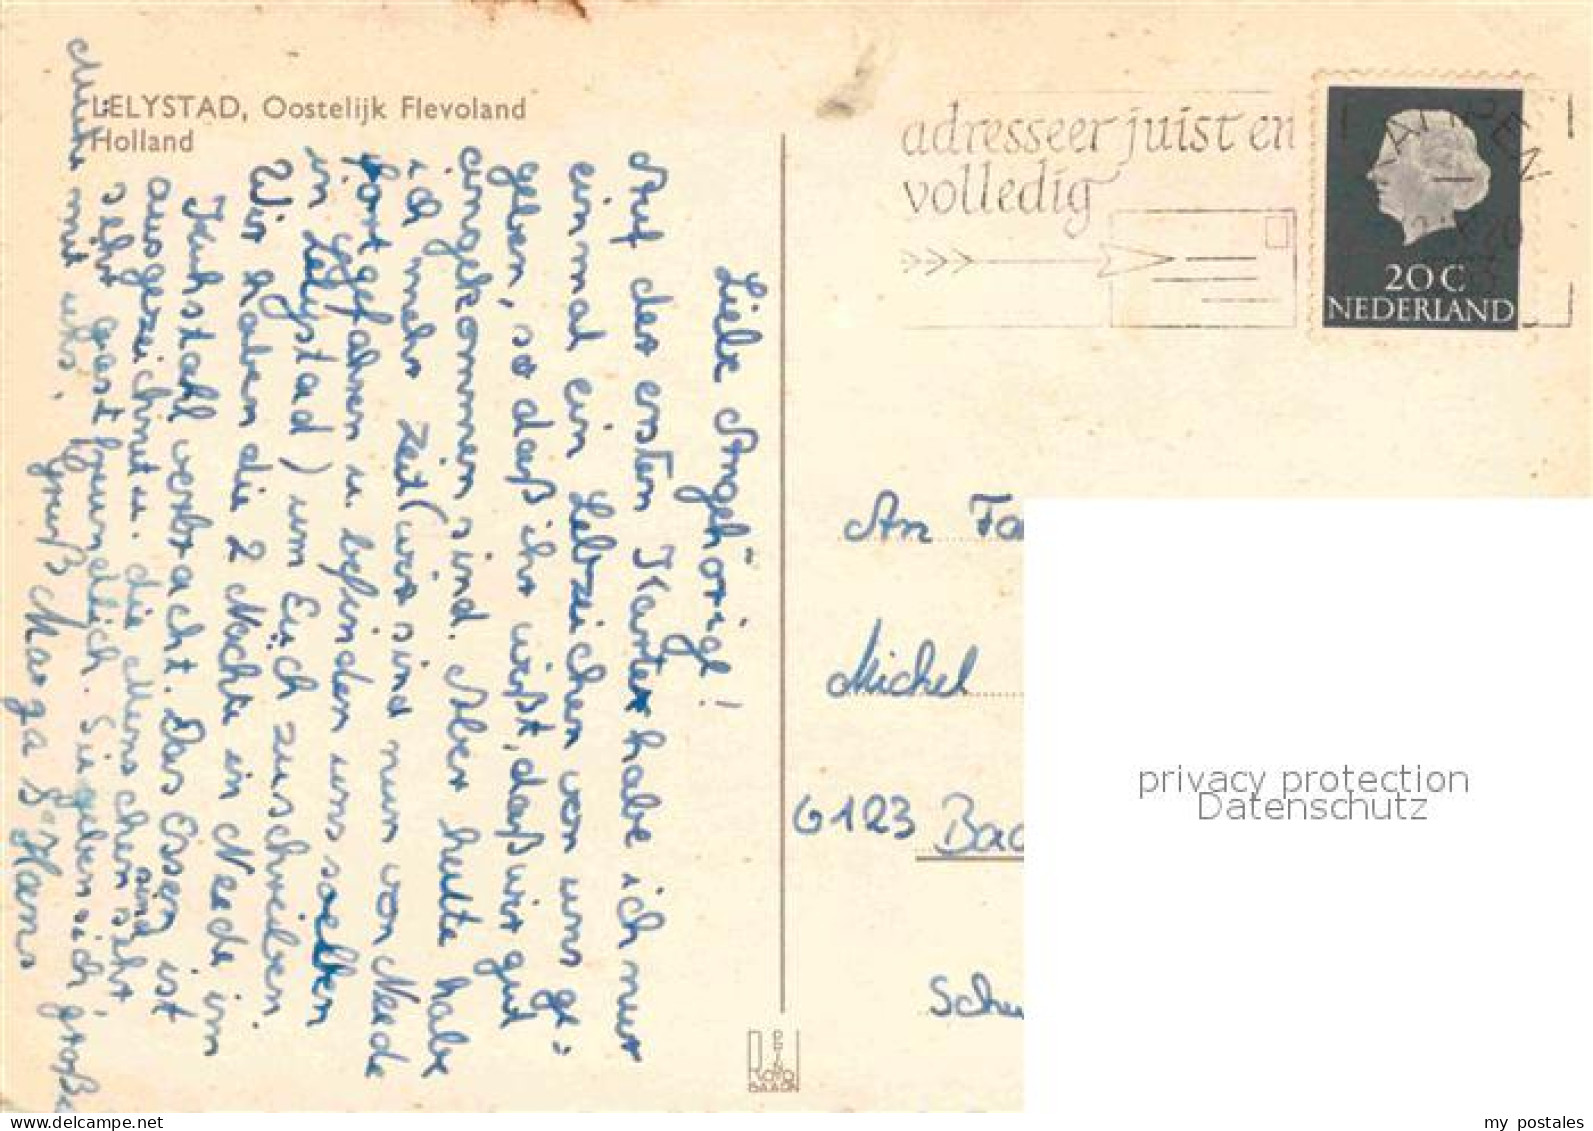 LELYSTAD, Oostelijk Flevoland
Holland
Liebe Angehörige!
Auf der ersten Karte habe ich nur
einmal ein Lebzeichen von uns ge-
geben, so daß ihr wißt, daß wir gut
angekommen sind. Aber heute habe
ich mehr Zeit (wir sind nun von Neede
fortgefahren u. befinden uns soeben
in Lelystad) um Euch zu schreiben.
Wir haben die 2 Nächte in Neede im
Kuhstall verbracht. Das Essen ist
ausgezeichnet u. die Menschen sind
sehr gastfreundlich. Sie geben sich große
Mühe mit uns. Gruß Marga u. Hans
adresseer juist en
volledig
20 C
NEDERLAND
An Fa
Michel
6123 Bad
Schu
privacy protection
Datenschutz
BAARN
my postales